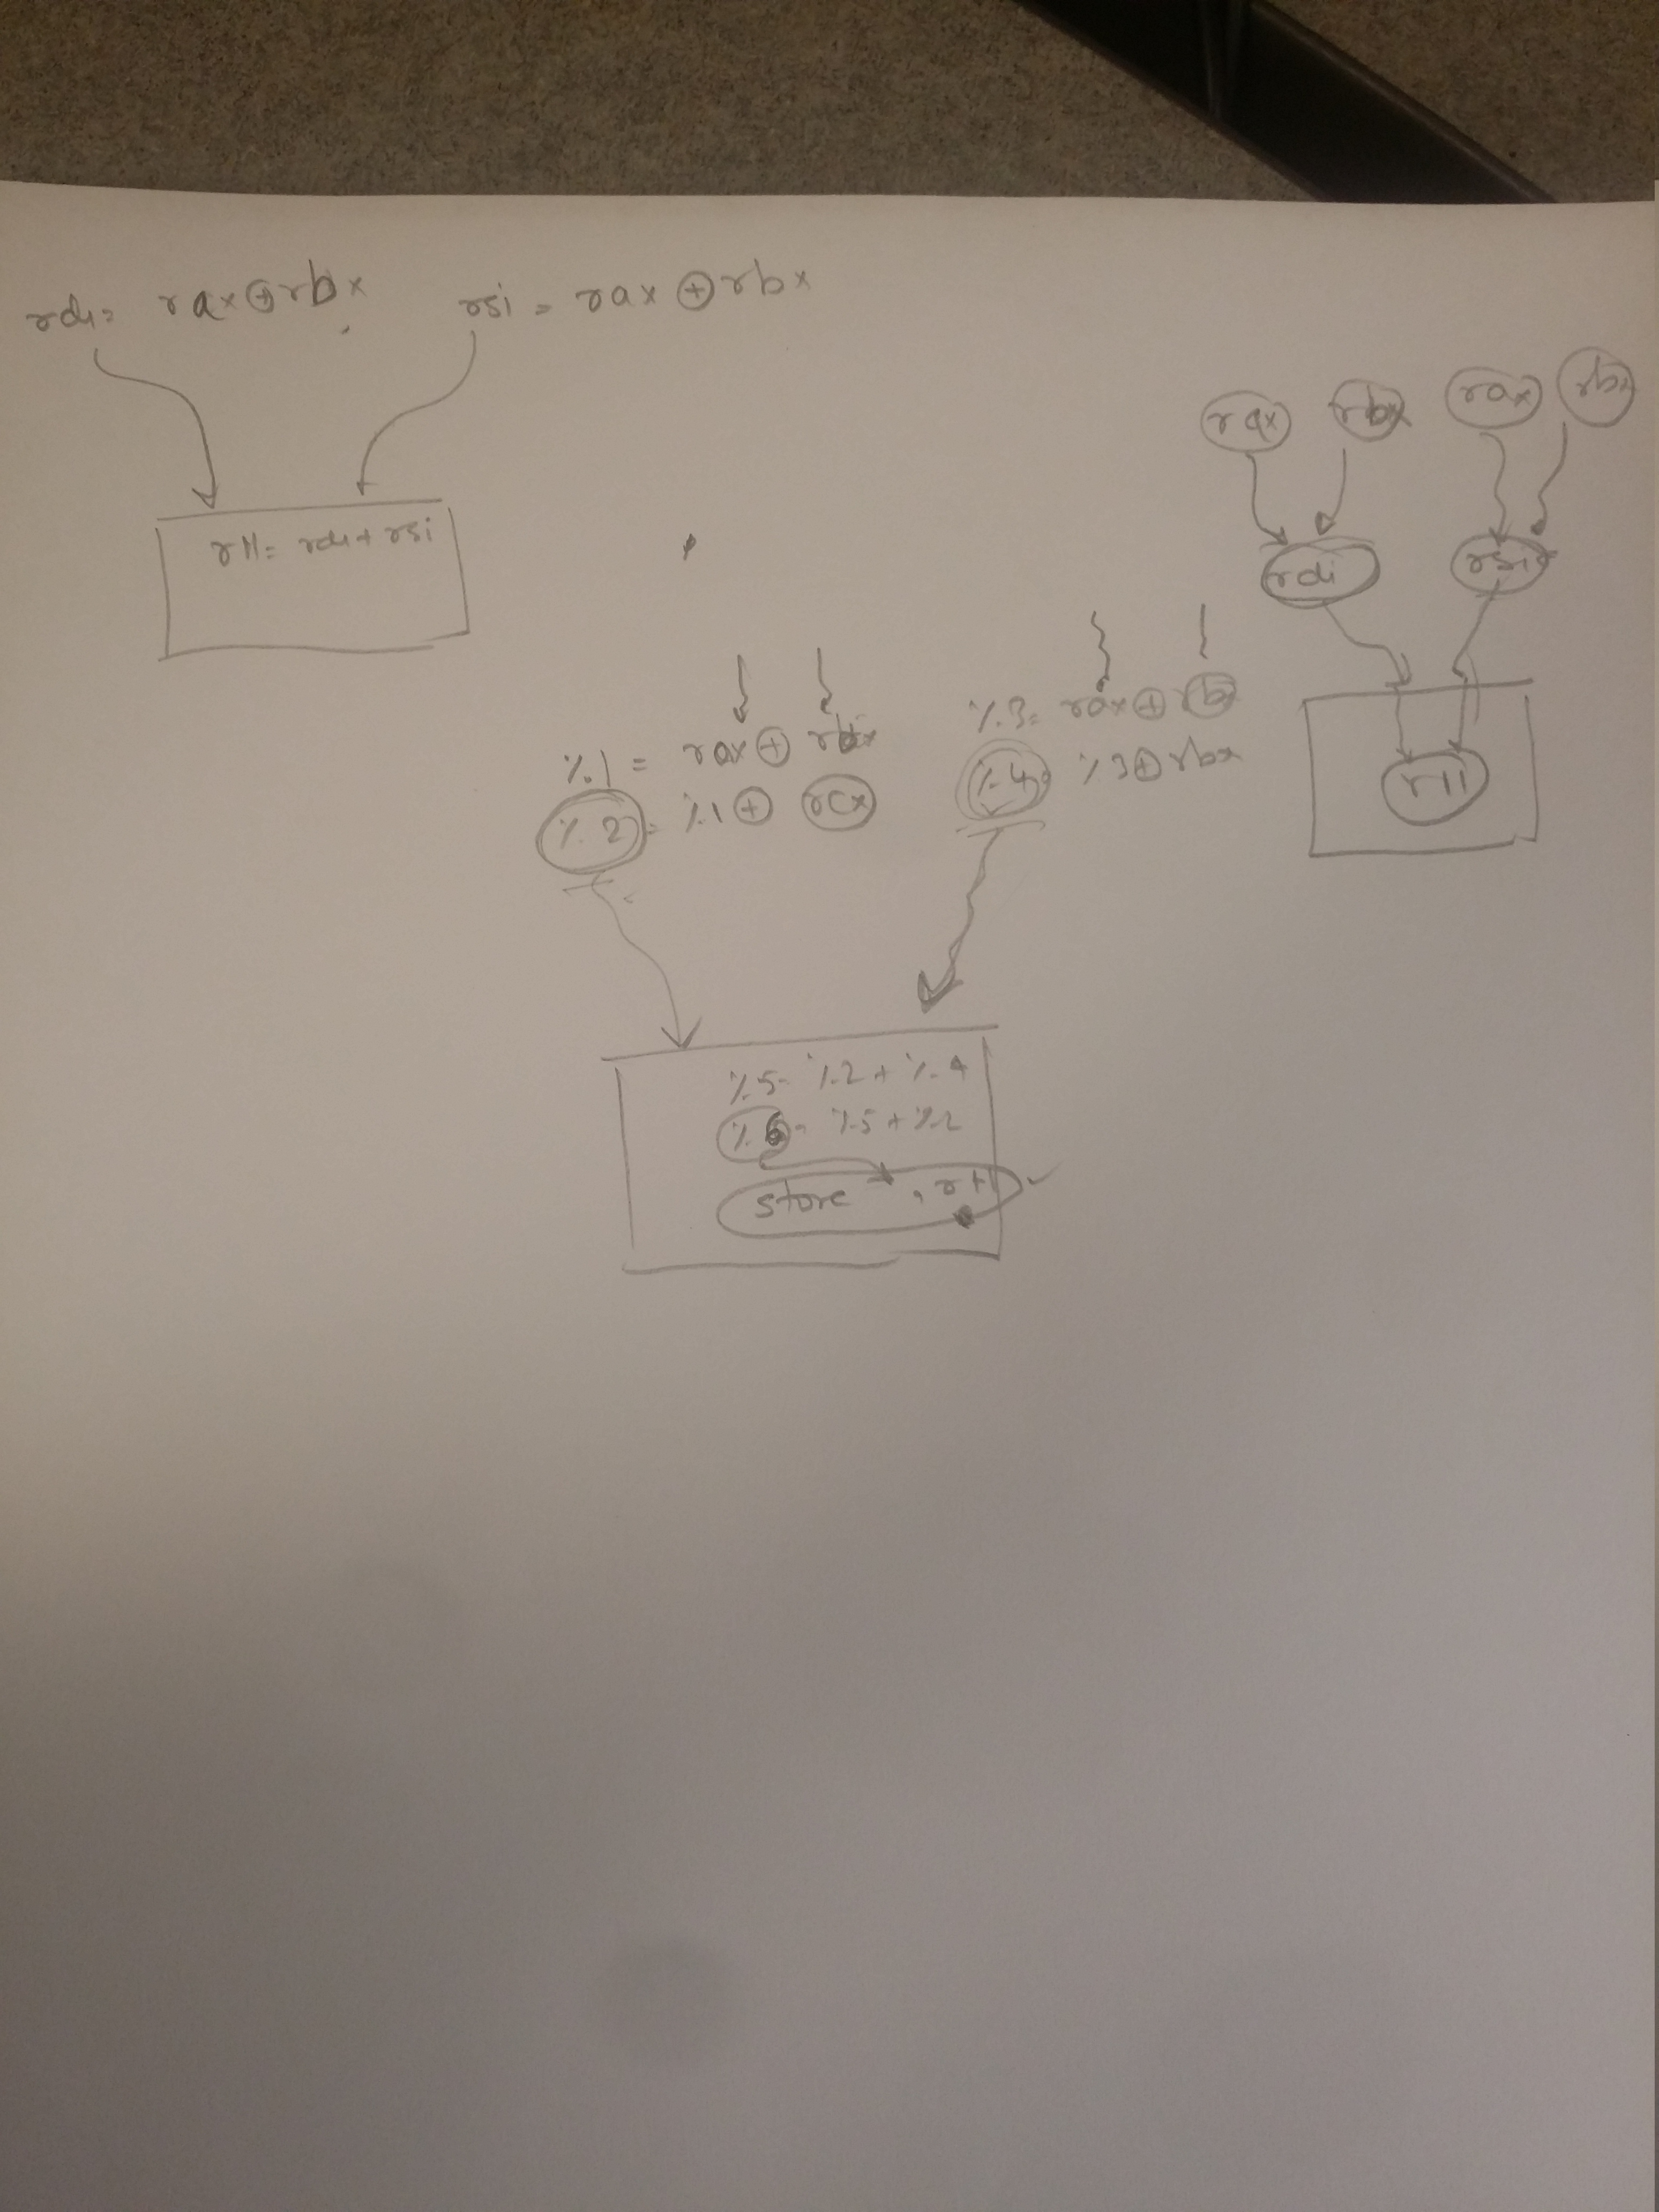 rdi = rax ⊕ rbx
rsi = rax ⊕ rbx
r11 = rdi + rsi
rax rbx rax rbx
rdi rsi
r11
%1 = rax ⊕ rbx
%2 = %1 ⊕ rcx
%3 = rax ⊕ rb
%4 = %3 ⊕ rbx
%5 = %2 + %4
%6 = %5 + %2
store , r11